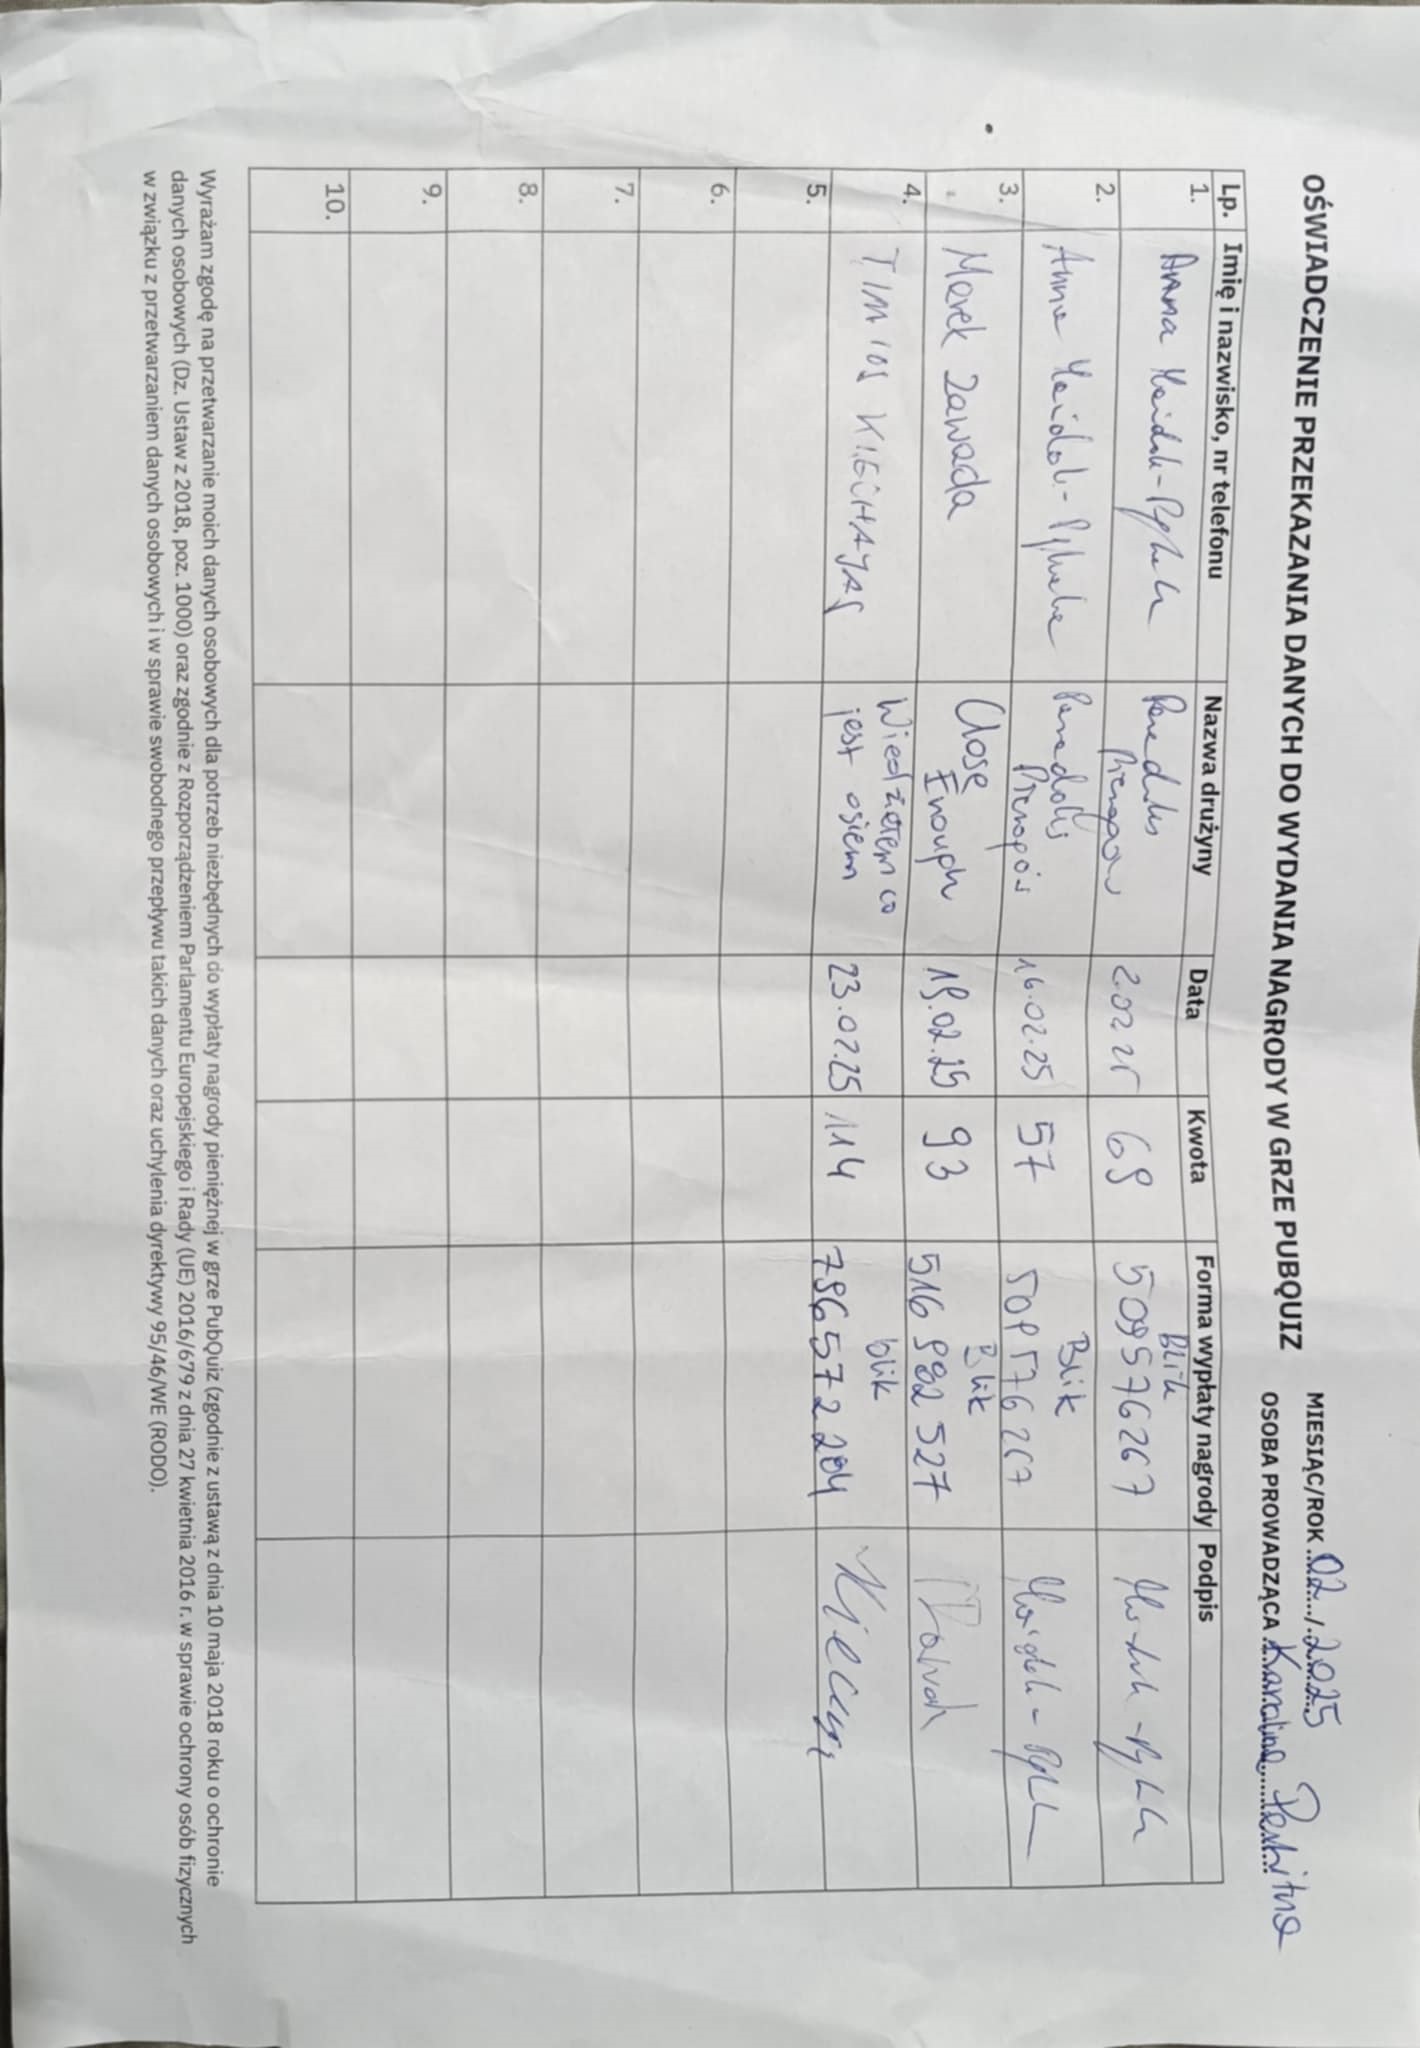 OŚWIADCZENIE PRZEKAZANIA DANYCH DO WYDANIA NAGRODY W GRZE PUBQUIZ
MIESIĄC/ROK 02/2025
OSOBA PROWADZĄCA Karolina
Lp. Imię i nazwisko, nr telefonu Nazwa drużyny Data Kwota Forma wypłaty nagrody Podpis
1. Anna 2.02.25 68 Blik 509576267
2. Anna 16.02.25 57 Blik 509576267
3. Marek Zawada Close Enough 19.02.25 93 Blik 516 982 527
4. Wiedziałem co
jest osiem 23.02.25 114 blik 786572204
5.
6.
7.
8.
9.
10.
Wyrażam zgodę na przetwarzanie moich danych osobowych dla potrzeb niezbędnych do wypłaty nagrody pieniężnej w grze PubQuiz (zgodnie z ustawą z dnia 10 maja 2018 roku o ochronie
danych osobowych (Dz. Ustaw z 2018, poz. 1000) oraz zgodnie z Rozporządzeniem Parlamentu Europejskiego i Rady (UE) 2016/679 z dnia 27 kwietnia 2016 r. w sprawie ochrony osób fizycznych
w związku z przetwarzaniem danych osobowych i w sprawie swobodnego przepływu takich danych oraz uchylenia dyrektywy 95/46/WE (RODO).